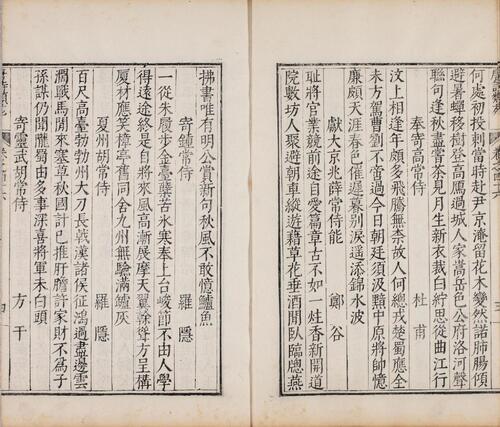 何處初投刺當時赴尹京淹留花木變然諾肺腸傾
避暑蟬移樹登高鴈過城人家嵩岳色公府洛河聲
聯句逢秋盡嘗茶見月生新衣裁白紵思從曲江行
奉寄高常侍　杜甫
汶上相逢年頗多飛騰無柰故人何總戎楚蜀應全
未方駕曹劉不啻過今日朝廷須汲黯中原將帥憶
廉頗天涯春色催遲暮別淚遙添錦水波
獻大京兆薛常侍能　鄭谷
耻將官業競前途自愛篇章古不如一炷香新開道
院數坊人聚避朝車縱遊藉草花垂酒閒臥臨牕燕
拂書唯有明公賞新句秋風不敢憶鱸魚
寄鍾常侍　羅隱
一從朱履步金臺蘖苦氷寒奉上台峻節不由人學
得遠途終是自將來風高漸展摩天翼幹聳方呈構
厦材應笑樟亭舊同舍九州無驗滿鑪灰
夏州胡常侍　羅隱
百尺高臺勃勃州大刀長戟漢諸侯征鴻過盡邊雲
濶戰馬閒來塞草秋國計已推肝膽許家財不爲子
孫謀仍聞隴蜀由多事深喜將軍未白頭
寄靈武胡常侍　方干